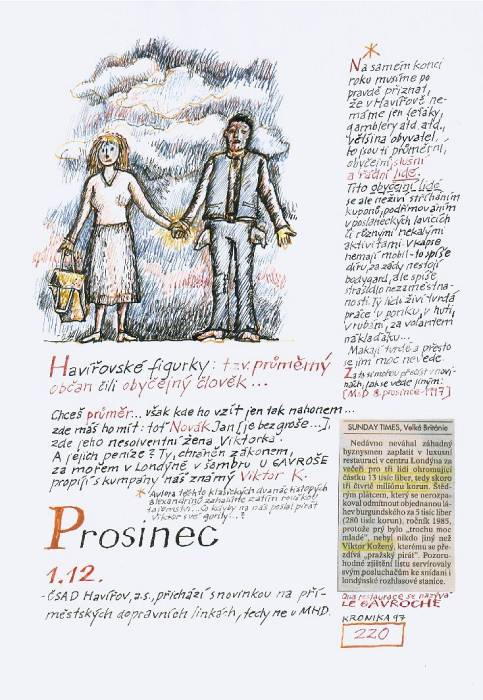 Na samém konci
roku musíme po
pravdě přiznat,
že v Havířově ne-
máme jen feťáky,
gamblery atd. atd.,
většina obyvatel,
to jsou ti průměrní,
obyčejní, slušní
a řádní lidé.
Tito obyčejní lidé
se ale neživí stříháním
kuponů, podřimováním
v poslaneckých lavicích
či různými nekalými
aktivitami. V kapse
nemají mobil - to spíše
díru, za zády nestojí
bodygard, ale spíše
strašidlo nezaměstna-
nosti. Ty lidi živí tvrdá
práce v porubu, v huti,
v rubání, za volantem
náklaďáku...
Makají tvrdě a přesto
se jim moc nevede.
Za to si mohou přečíst v novi-
nách, jak se vede jiným:
[MfD 8. prosince 1997]
Havířovské figurky: tzv. průměrný
občan čili obyčejný člověk...
Chceš průměr... však kde ho vzít jen tak nahonem...
zde máš ho mít: toť Novák Jan [je bez groše...],
zde jeho nesolventní žena Viktorka.
A jejich peníze? Ty, chráněn zákonem,
za mořem v Londýně v šambru u GAVROŠE
propíjí s kumpány náš známý Viktor K.
* Autora těchto klasických dvanáctistopých
alexandrinů zahalme zatím rouškou
tajemství... Co kdyby na nás poslal pirát
Viktor své gorily...?
SUNDAY TIMES, Velká Británie
Nedávno neváhal záhadný
byznysmen zaplatit v luxusní
restauraci v centru Londýna za
večeři pro tři lidi ohromující
částku 13 tisíc liber, tedy skoro
tři čtvrtě miliónu korun. Ště-
drým plátcem, který se nerozpa-
koval odmítnout objednanou lá-
hev burgundského za 5 tisíc liber
(280 tisíc korun), ročník 1985,
protože prý bylo „trochu moc
mladé“, nebyl nikdo jiný než
Viktor Kožený, kterému se pře-
zdívá „pražský pirát“. Pozoru-
hodné zjištění listu servírovaly
svým posluchačům ke snídani i
londýnské rozhlasové stanice.
Ona restaurace se nazývá
LE GAVROCHE
KRONIKA 97
220
Prosinec
1.12.
- ČSAD Havířov, a.s., přichází s novinkou na pří-
městských dopravních linkách, tedy ne u MHD.